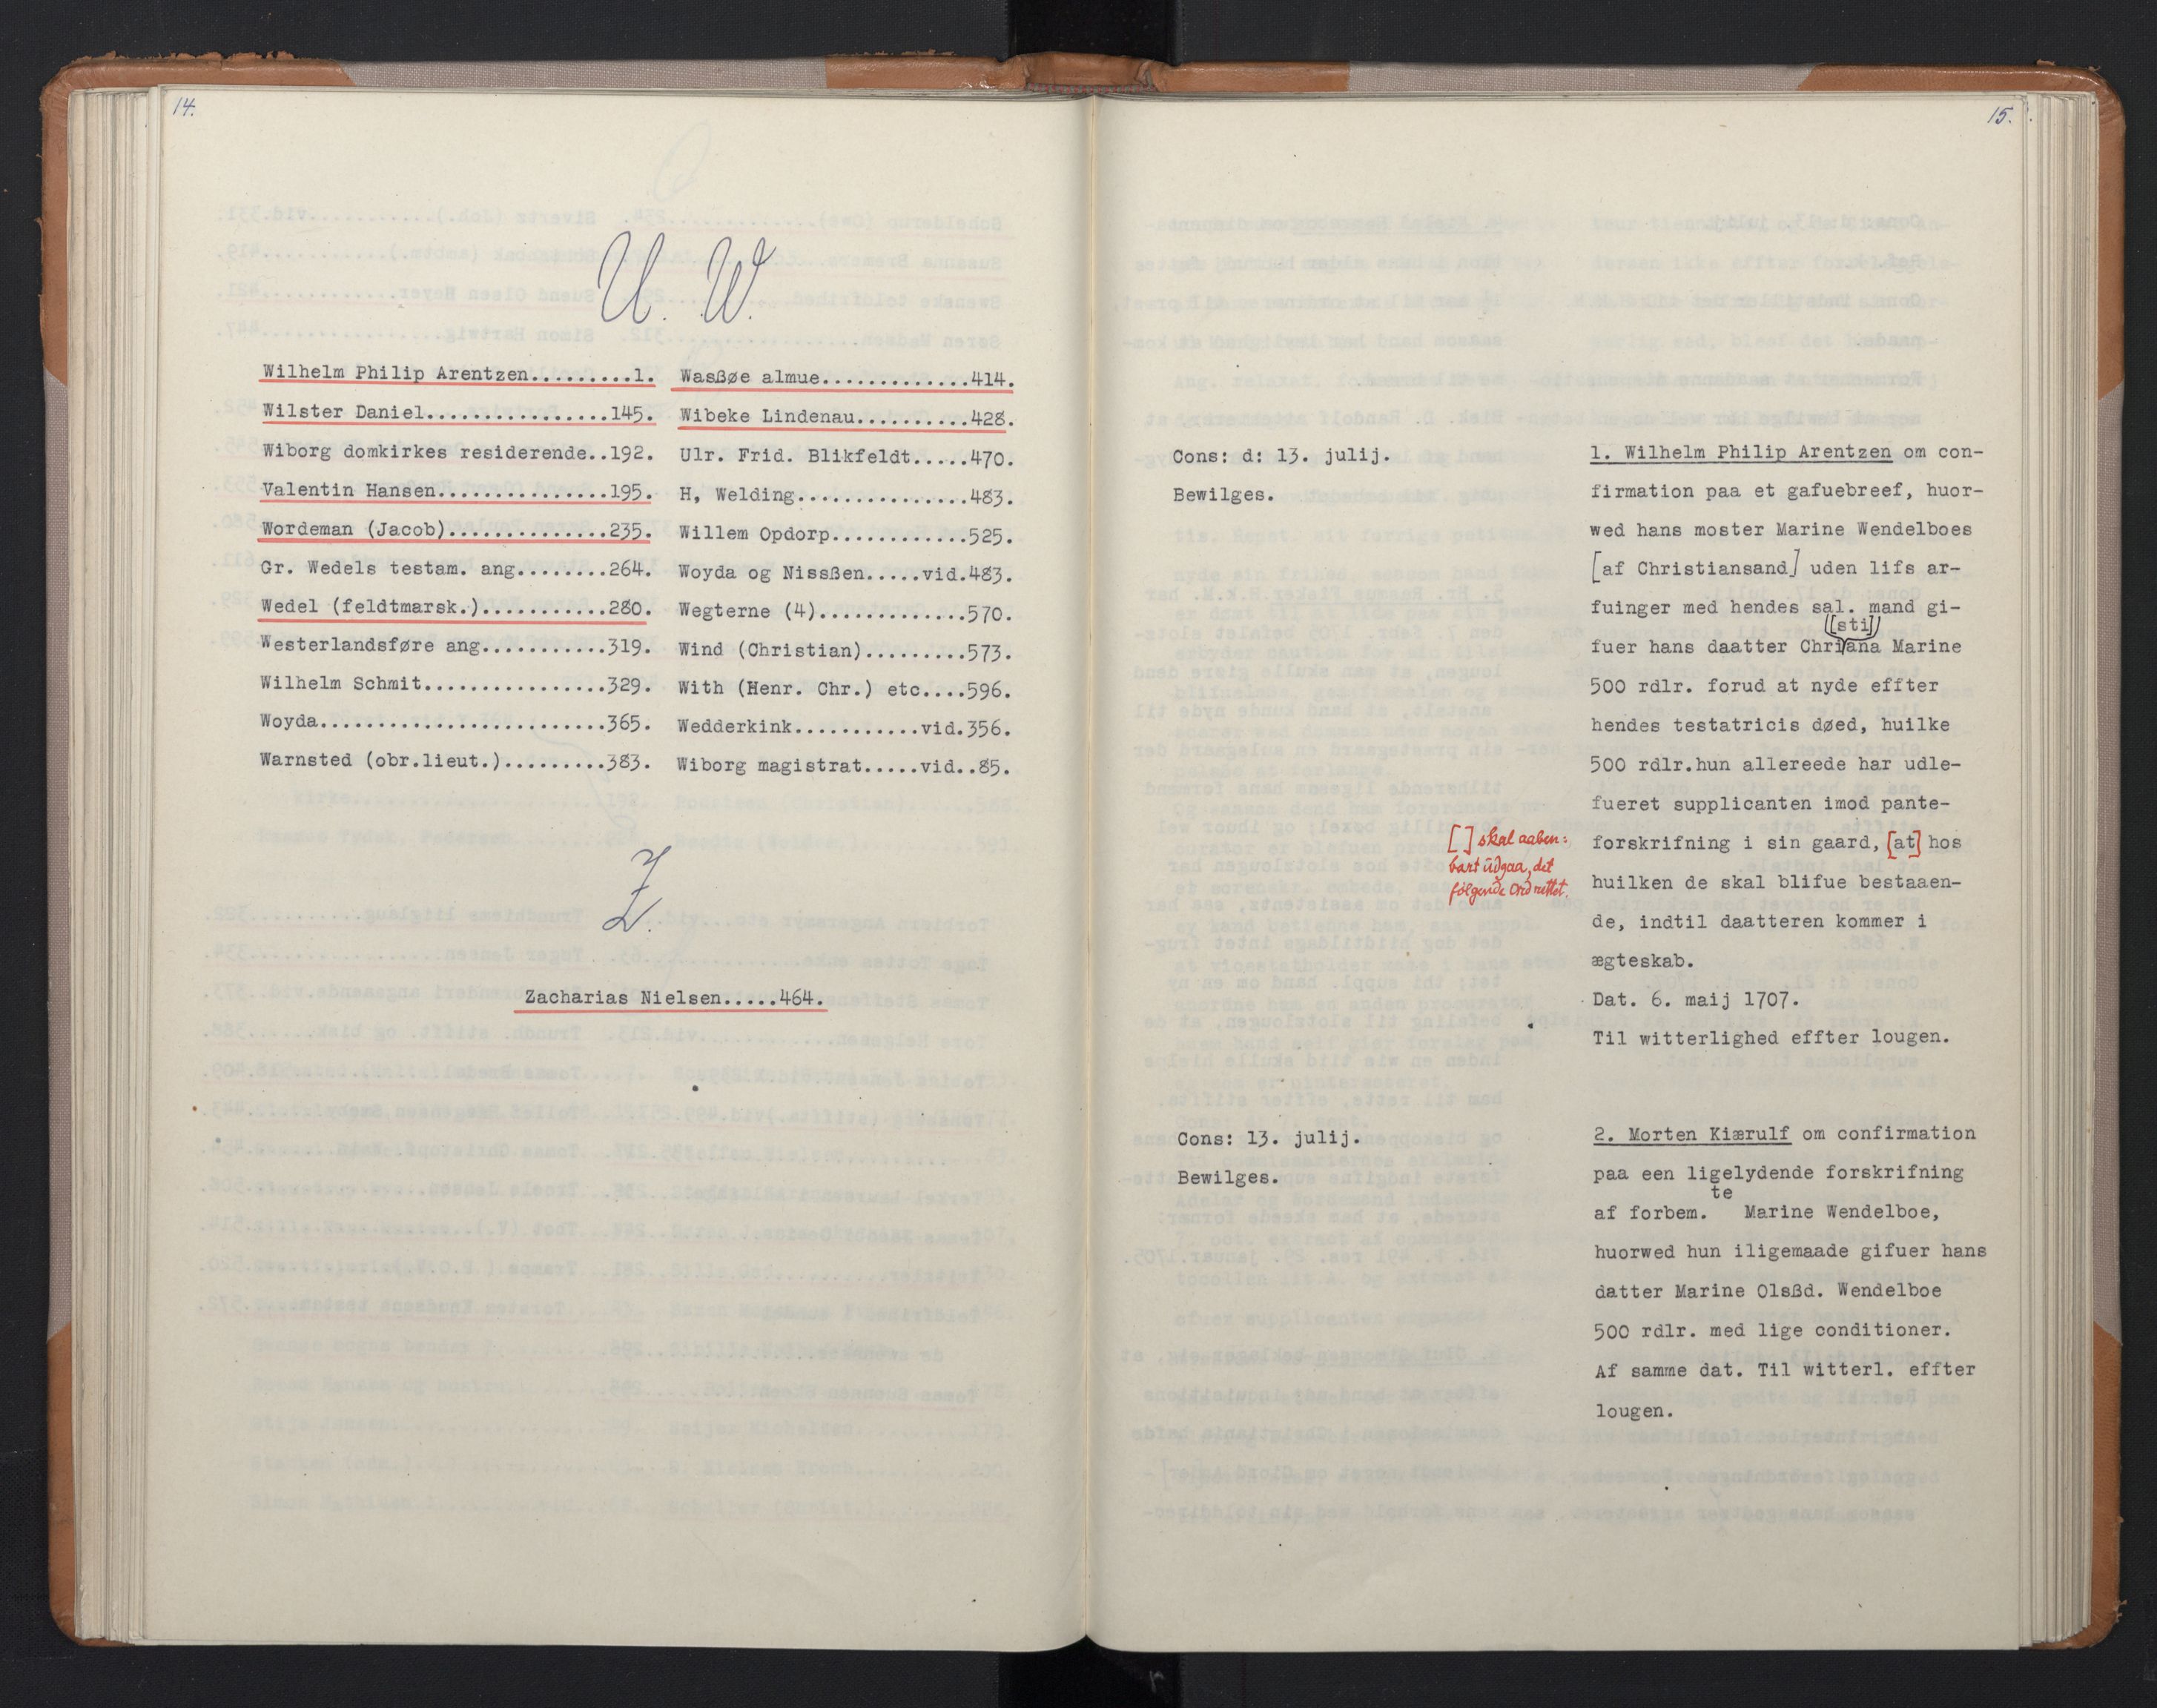 14.
U. W.
Wilhelm Philip Arentzen.........1.
Wilster Daniel................145.
Wiborg domkirkes residerende..192.
Valentin Hansen...............195.
Wordeman (Jacob)..............235.
Gr. Wedels testam. ang........264.
Wedel (feldtmarsk.)...........280.
Westerlandsføre ang...........319.
Wilhelm Schmit................329.
Woyda.........................365.
Warnsted (obr.lieut.).........383.
Wasßøe almue.............414.
Wibeke Lindenau..........428.
Ulr. Frid. Blikfeldt.....470.
H, Welding...............483.
Willem Opdorp............525.
Woyda og Nissßen.....vid.483.
Wegterne (4).............570.
Wind (Christian).........573.
With (Henr. Chr.) etc....596.
Wedderkink...........vid.356.
Wiborg magistrat.....vid..85.
Z.
Zacharias Nielsen.....464.
15.
Cons: d: 13. julij.
Bewilges.
1. Wilhelm Philip Arentzen om con-
firmation paa et gafuebreef, huor-
wed hans moster Marine Wendelboes
[af Christiansand] uden lifs ar-
fuinger med hendes sal. mand gi-
fuer hans daatter Chri[sti]ana Marine
500 rdlr. forud at nyde effter
hendes testatricis døed, huilke
500 rdlr.hun allereede har udle-
fueret supplicanten imod pante-
forskrifning i sin gaard, [at] hos
huilken de skal blifue bestaaen-
de, indtil daatteren kommer i
ægteskab.
Dat. 6. maij 1707.
Til witterlighed effter lougen.
[ ] skal aaben:
bart udgaa, det
følgende ord rettet.
Cons: 13. julij.
Bewilges.
2. Morten Kiærulf om confirmation
paa een ligelydende forskrifning
af forbem.te Marine Wendelboe,
huorwed hun iligemaade gifuer hans
datter Marine Olsßd. Wendelboe
500 rdlr. med lige conditioner.
Af samme dat. Til witterl. effter
lougen.